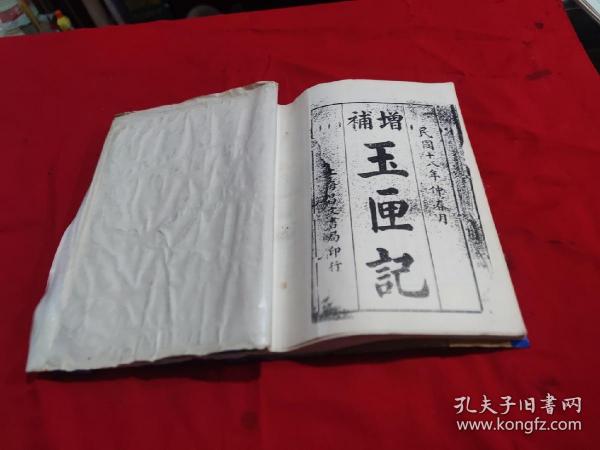 民國十八年仲春月
增補
玉匣記
文書局印行
孔夫子旧书网
www.kongfz.com